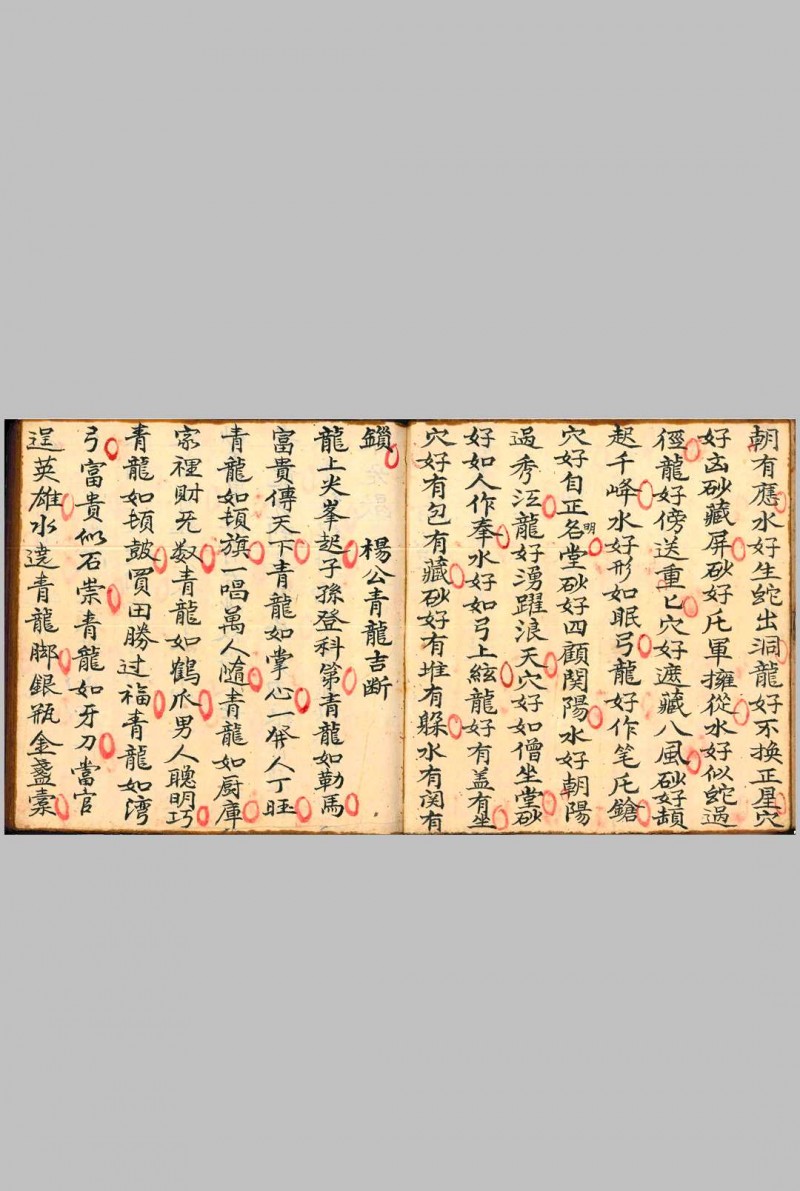 朝有應水好生蛇出洞龍好不换正星穴
好出砂藏屏砂好氏軍擁從水好似蛇過
徑龍好傍送重匕穴好遮藏八風砂好頡
起千峰水好形如眠弓龍好作笔氏鎗
穴好自正名明堂砂好四顧関陽水好朝陽
過秀江龍好湧躍浪天穴好如僧坐堂砂
好如人作奉水好如弓上絃龍好有盖有坐
穴好有包有藏砂好有堆有躲水有関有
鎖 楊公青龍吉断
龍上尖峯起子孫登科第青龍如勒馬
富貴傳天下青龍如掌心一発人丁旺
青龍如頓旗一唱萬人隨青龍如厨庫
家裡財无数青龍如鶴爪男人聰明巧
青龍如頓皷買田勝过福青龍如湾
弓富貴似石崇青龍如牙刀當官
逞英雄水遶青龍脚銀瓶金盞索